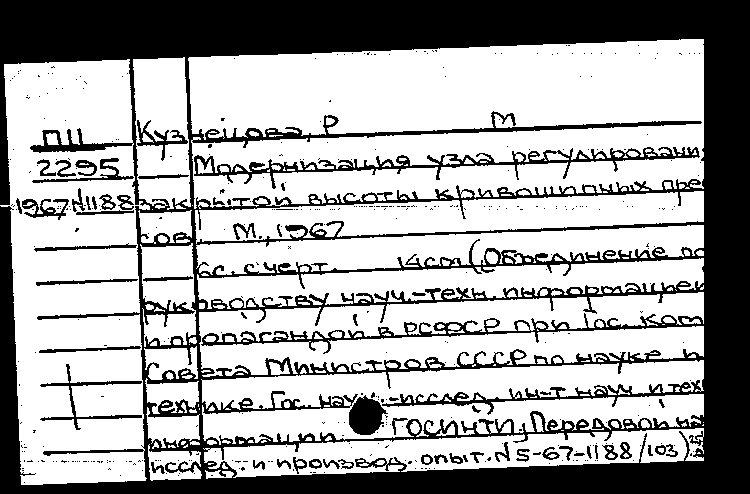 ПII Кузнецова, Р М
2295 Модернизация узла регулировани
1967 №1188 закрытой высоты кривошипных пре
сов. М., 1967
6с. с черт. 14см (Объединение по
руководству науч.-техн. информацией
и пропагандой в РСФСР при Гос. ком
Совета Министров СССР по науке и
технике. Гос. науч.-исслед. ин-т науч. и тех
информации. ГОСИНТИ; Передовой на
исслед. и производ. опыт. №5-67-1188/103)